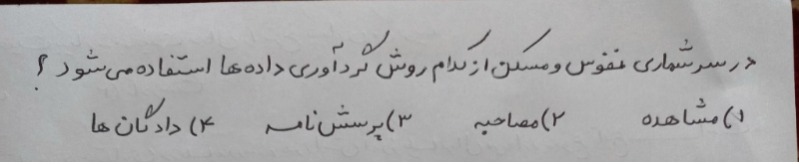 در سرشماری نفوس و مسکن از کدام روش گردآوری داده‌ها استفاده می‌شود ؟
۱) مشاهده ۲) مصاحبه ۳) پرسش‌نامه ۴) دادگان‌ها